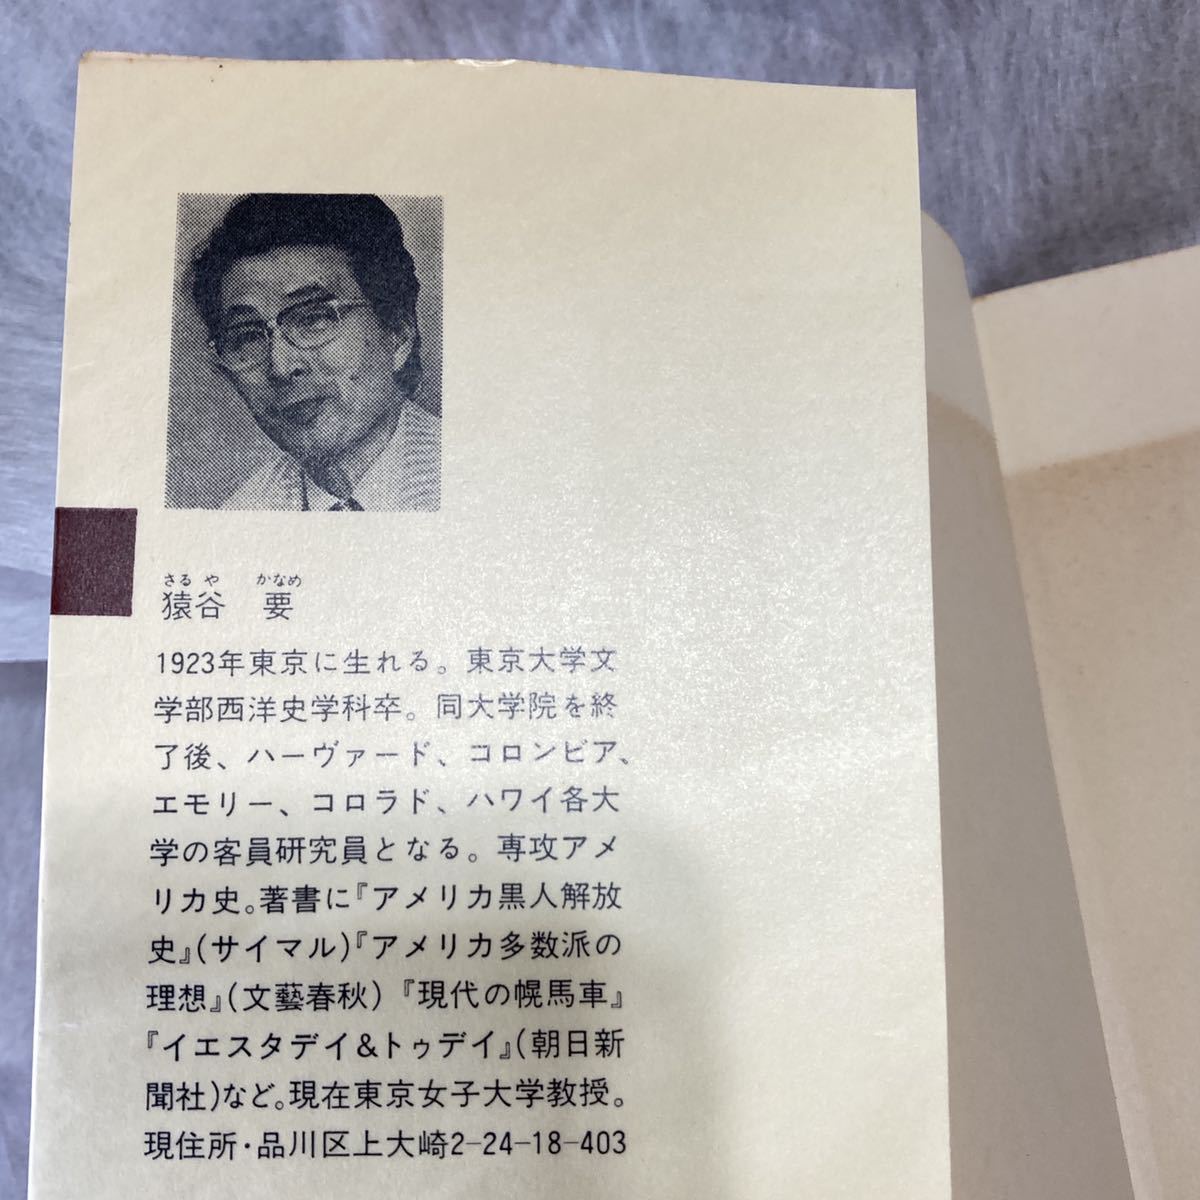 さるや かなめ
猿谷 要
1923年東京に生れる。東京大学文
学部西洋史学科卒。同大学院を終
了後、ハーヴァード、コロンビア、
エモリー、コロラド、ハワイ各大
学の客員研究員となる。専攻アメ
リカ史。著書に『アメリカ黒人解放
史』(サイマル)『アメリカ多数派の
理想』(文藝春秋)『現代の幌馬車』
『イエスタデイ&トゥデイ』(朝日新
聞社)など。現在東京女子大学教授。
現住所・品川区上大崎2-24-18-403